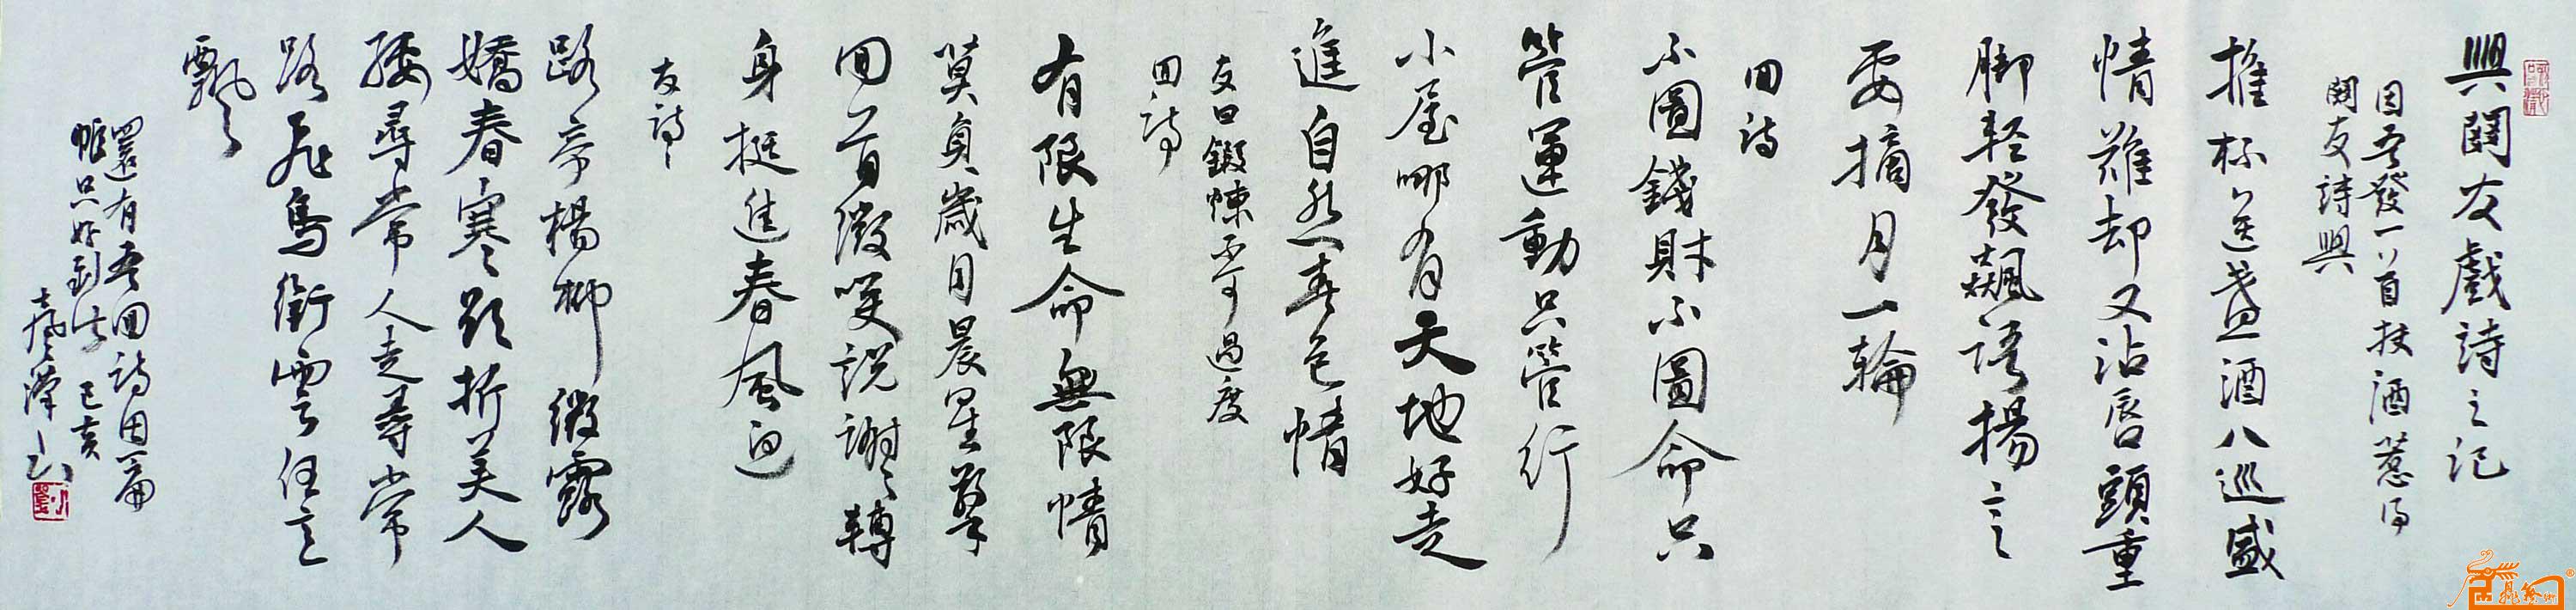 興閨友戲詩之記
因吾發一首扶酒惹得
閨友詩興
推杯送盞酒八巡盛
情難却又沾唇頭重
脚輕發飆語揚言
要摘月一輪
回詩
不圖錢財不圖命只
管運動只管行
小屋哪有天地好走
進自然春色情
友曰鍛煉不可過度
回詩
有限生命無限情
莫負歲月晨星擎
回首微笑説謝謝轉
身挺進春風迎
友詩
路旁楊柳微露
嬌春寒欲折美人
腰尋常人走尋常
路飛鳥銜雲任意
飄飄
還有吾回詩因篇
帷只好到此 己亥
漢山